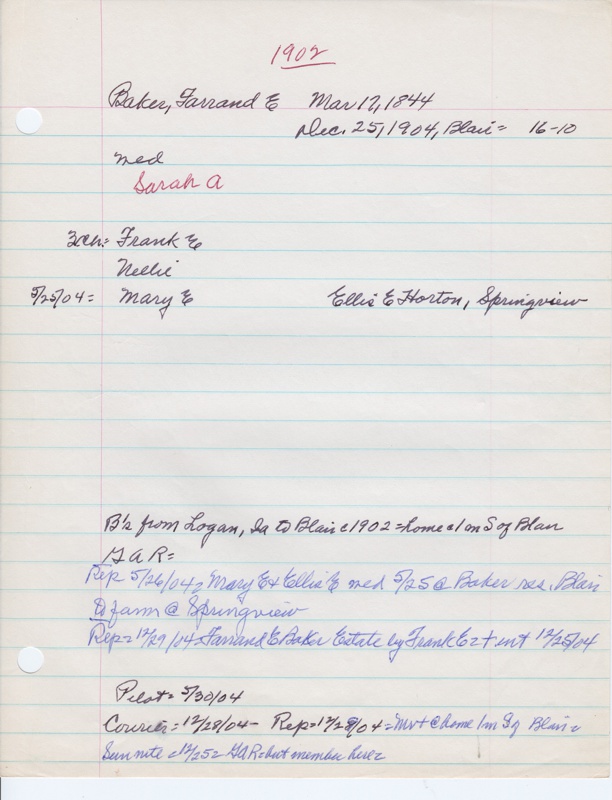 1902
Baker, Farrand E Mar 17, 1844
Dec. 25, 1904, Blair= 16-10
med
Sarah A
3ch: Frank E
Nellie
5/25/04= Mary E Ellis E Horton, Springview
B's from Logan, Ia to Blair c1902=home c1m S of Blair
GAR=
Rep 5/26/04= Mary E & Ellis E med 5/25 @ Baker res. Blair
to farm @ Springview
Rep=12/29/04 Farrand E Baker Estate by Frank E= + int 12/25/04
Pilot= 5/30/04
Courier=12/28/04- Rep=12/28/04= @ home 1m S of Blair=
Sun nite =12/25= GAR= but member here=